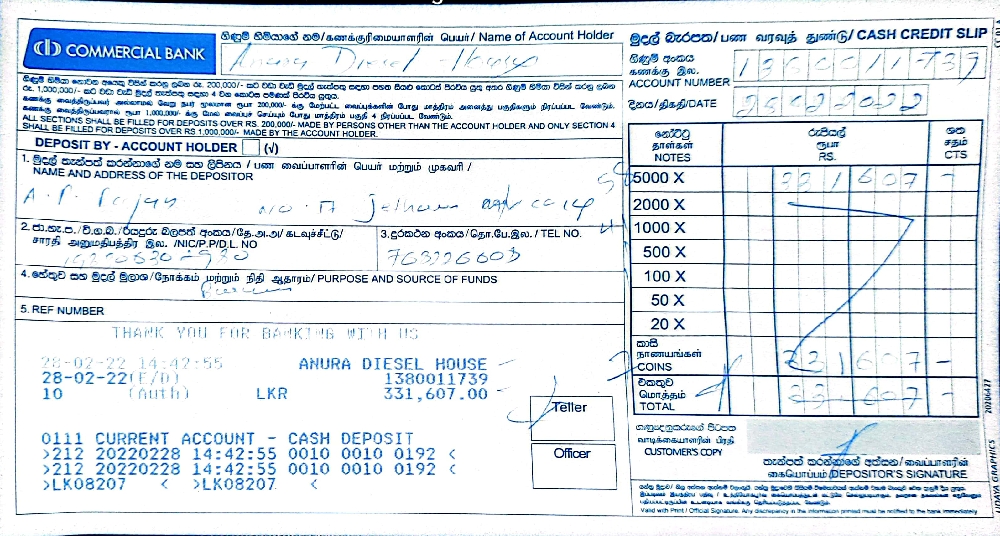 COMMERCIAL BANK
ගිණුම් හිමියාගේ නම/கணக்குரிமையாளரின் பெயர்/ Name of Account Holder
Anura Diesel House
මුදල් බැරපත/பண வரவுத் துண்டு/ CASH CREDIT SLIP
ගිණුම් අංකය
கணக்கு இல.
ACCOUNT NUMBER
දිනය/திகதி/DATE
28022022
ALL SECTIONS SHALL BE FILLED FOR DEPOSITS OVER RS. 200,000/- MADE BY PERSONS OTHER THAN THE ACCOUNT HOLDER AND ONLY SECTION 4
SHALL BE FILLED FOR DEPOSITS OVER RS 1,000,000/- MADE BY THE ACCOUNT HOLDER.
DEPOSIT BY - ACCOUNT HOLDER (√)
1. මුදල් තැන්පත් කරන්නාගේ නම සහ ලිපිනය / பண வைப்பாளரின் பெயர் மற்றும் முகவரி /
NAME AND ADDRESS OF THE DEPOSITOR
2. ජා.හැ.ප./වි.ග.බ./රියදුරු බලපත් අංකය/தே.அ.அ/ கடவுச்சீட்டு/
சாரதி அனுமதிபத்திர இல. /NIC/P.P/D.L. NO
3. දුරකථන අංකය/தொ.பே.இல./ TEL NO.
4. හේතුව සහ මුදල් මූලාශ්‍ර/நோக்கம் மற்றும் நிதி ஆதாரம்/ PURPOSE AND SOURCE OF FUNDS
5. REF NUMBER
THANK YOU FOR BANKING WITH US
28-02-22 14:42:55 ANURA DIESEL HOUSE
28-02-22(E/D) 1380011739
10 (Auth) LKR 331,607.00
0111 CURRENT ACCOUNT - CASH DEPOSIT
>212 20220228 14:42:55 0010 0010 0192 <
>212 20220228 14:42:55 0010 0010 0192 <
>LK08207 < >LK08207 <
Teller
Officer
නෝට්ටු රුපියල් ශත
தாள்கள் ரூபா சதம்
NOTES RS. CTS
5000 X 331607 -
2000 X
1000 X
500 X
100 X
50 X
20 X
කාසි
நாணயங்கள்
COINS 331607 -
එකතුව
மொத்தம்
TOTAL 331607 -
ගනුදෙනුකරුගේ පිටපත
வாடிக்கையாளரின் பிரதி
CUSTOMER'S COPY
තැන්පත් කරන්නාගේ අත්සන/வைப்பாளரின்
கையொப்பம் /DEPOSITOR'S SIGNATURE
Valid with Print / Official Signature. Any discrepancy in the information printed must be notified to the bank immediately
20206427
UDAYA GRAPHICS